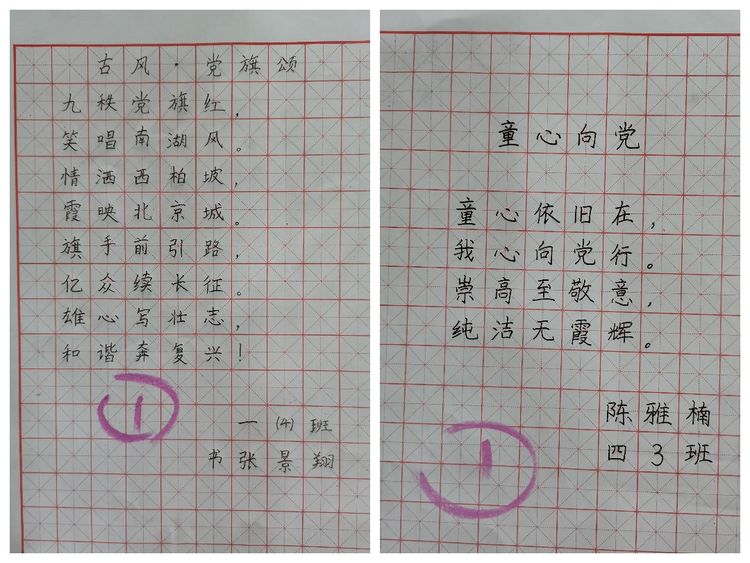 古风·党旗颂
九秩党旗红，
笑唱南湖风。
情洒西柏坡，
霞映北京城。
旗手前引路，
亿众续长征。
雄心写壮志，
和谐奔复兴！
1
一（4）班
书张景翔
童心向党
童心依旧在，
我心向党行。
崇高至敬意，
纯洁无霞辉。
陈雅楠
四3班
1